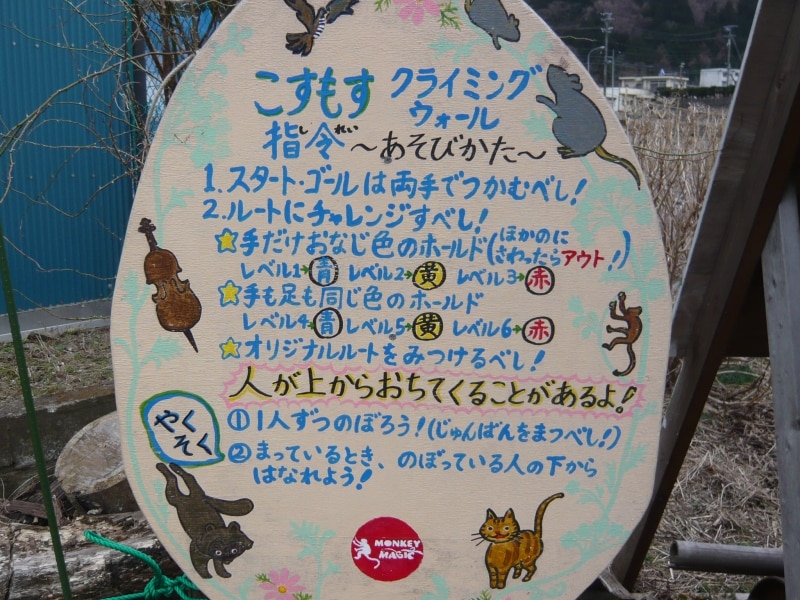 こすもす クライミング
ウォール
指令 しれい ～あそびかた～
1.スタート・ゴールは両手でつかむべし!
2.ルートにチャレンジすべし!
☆手だけおなじ色のホールド(ほかのに
さわったらアウト!)
レベル1→青 レベル2→黄 レベル3→赤
☆手も足も同じ色のホールド
レベル4→青 レベル5→黄 レベル6→赤
☆オリジナルルートをみつけるべし!
人が上からおちてくることがあるよ!
やく
そく
①1人ずつのぼろう!(じゅんばんをまつべし!)
②まっているとき、のぼっている人の下から
はなれよう!
MONKEY
MAGIC